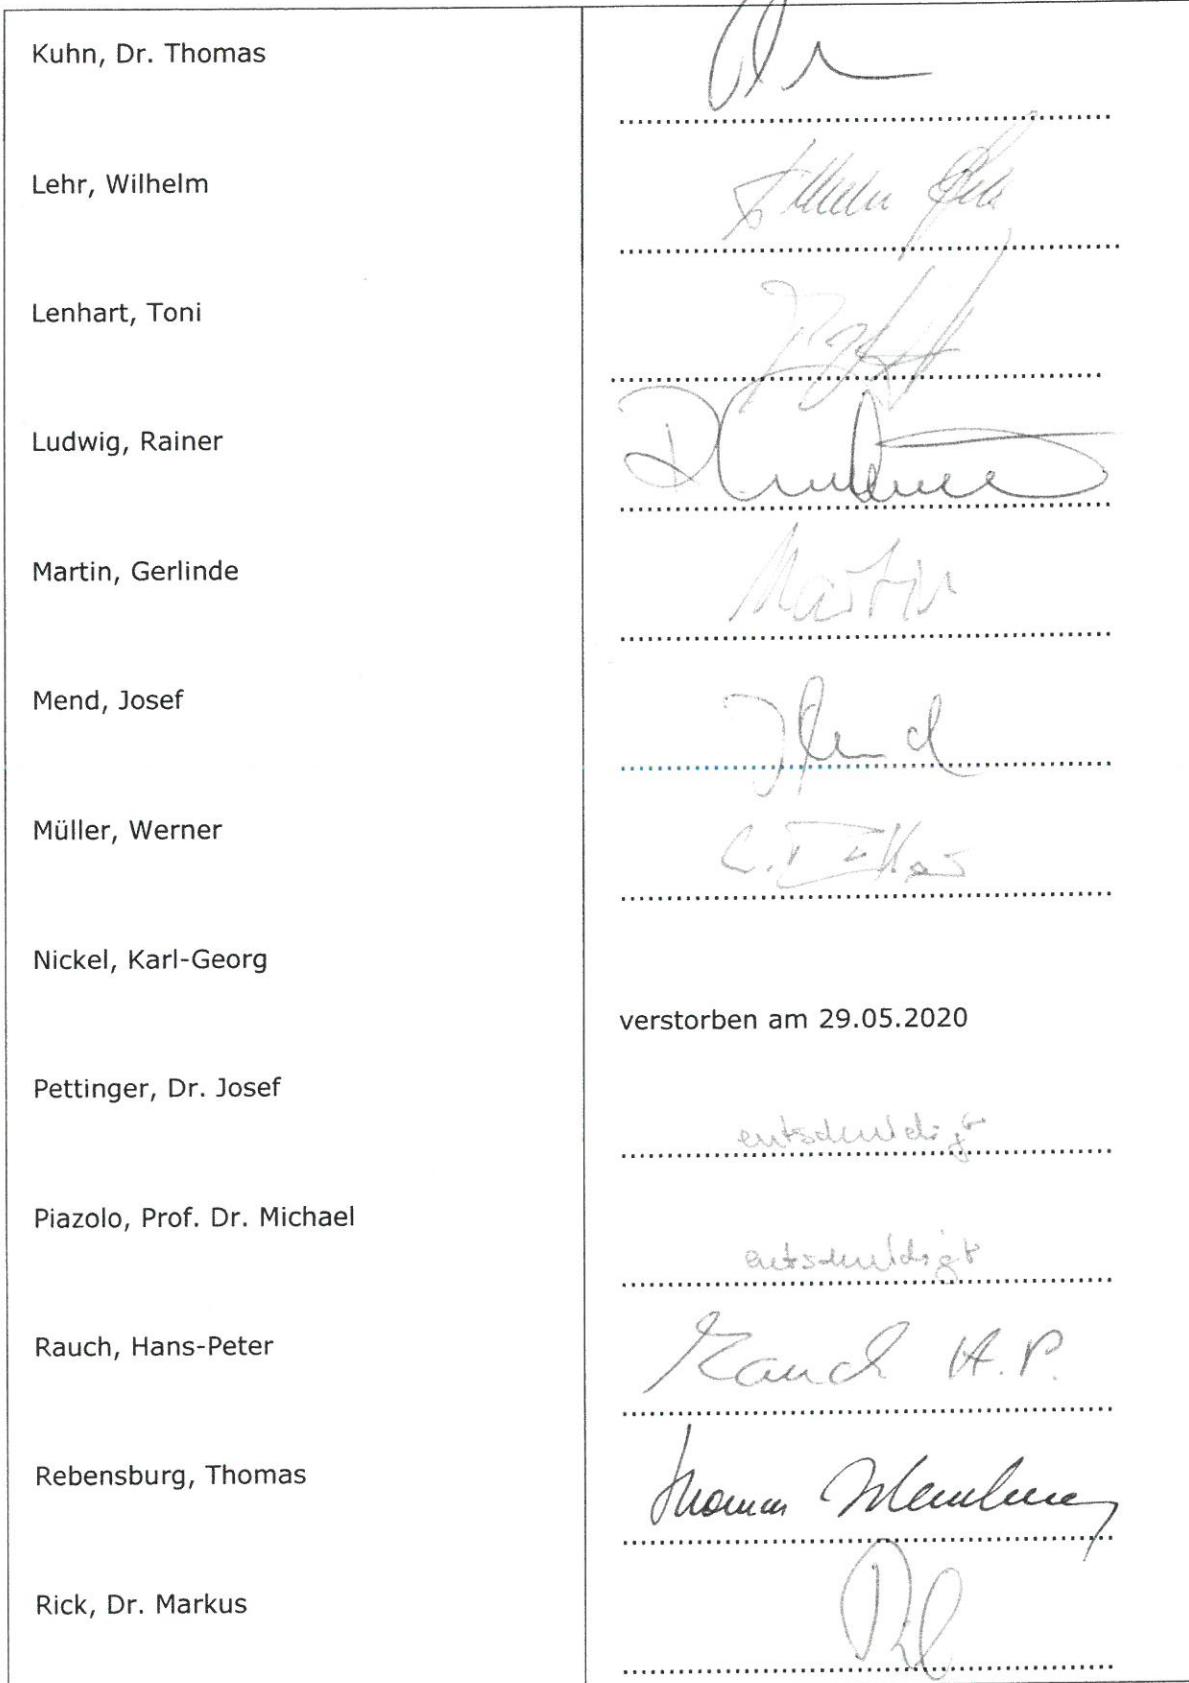 Kuhn, Dr. Thomas
Lehr, Wilhelm
Lenhart, Toni
Ludwig, Rainer
Martin, Gerlinde
Martin
Mend, Josef
Mend
Müller, Werner
Nickel, Karl-Georg
verstorben am 29.05.2020
Pettinger, Dr. Josef
entschuldigt
Piazolo, Prof. Dr. Michael
entschuldigt
Rauch, Hans-Peter
Rauch H.P.
Rebensburg, Thomas
Thomas
Rick, Dr. Markus